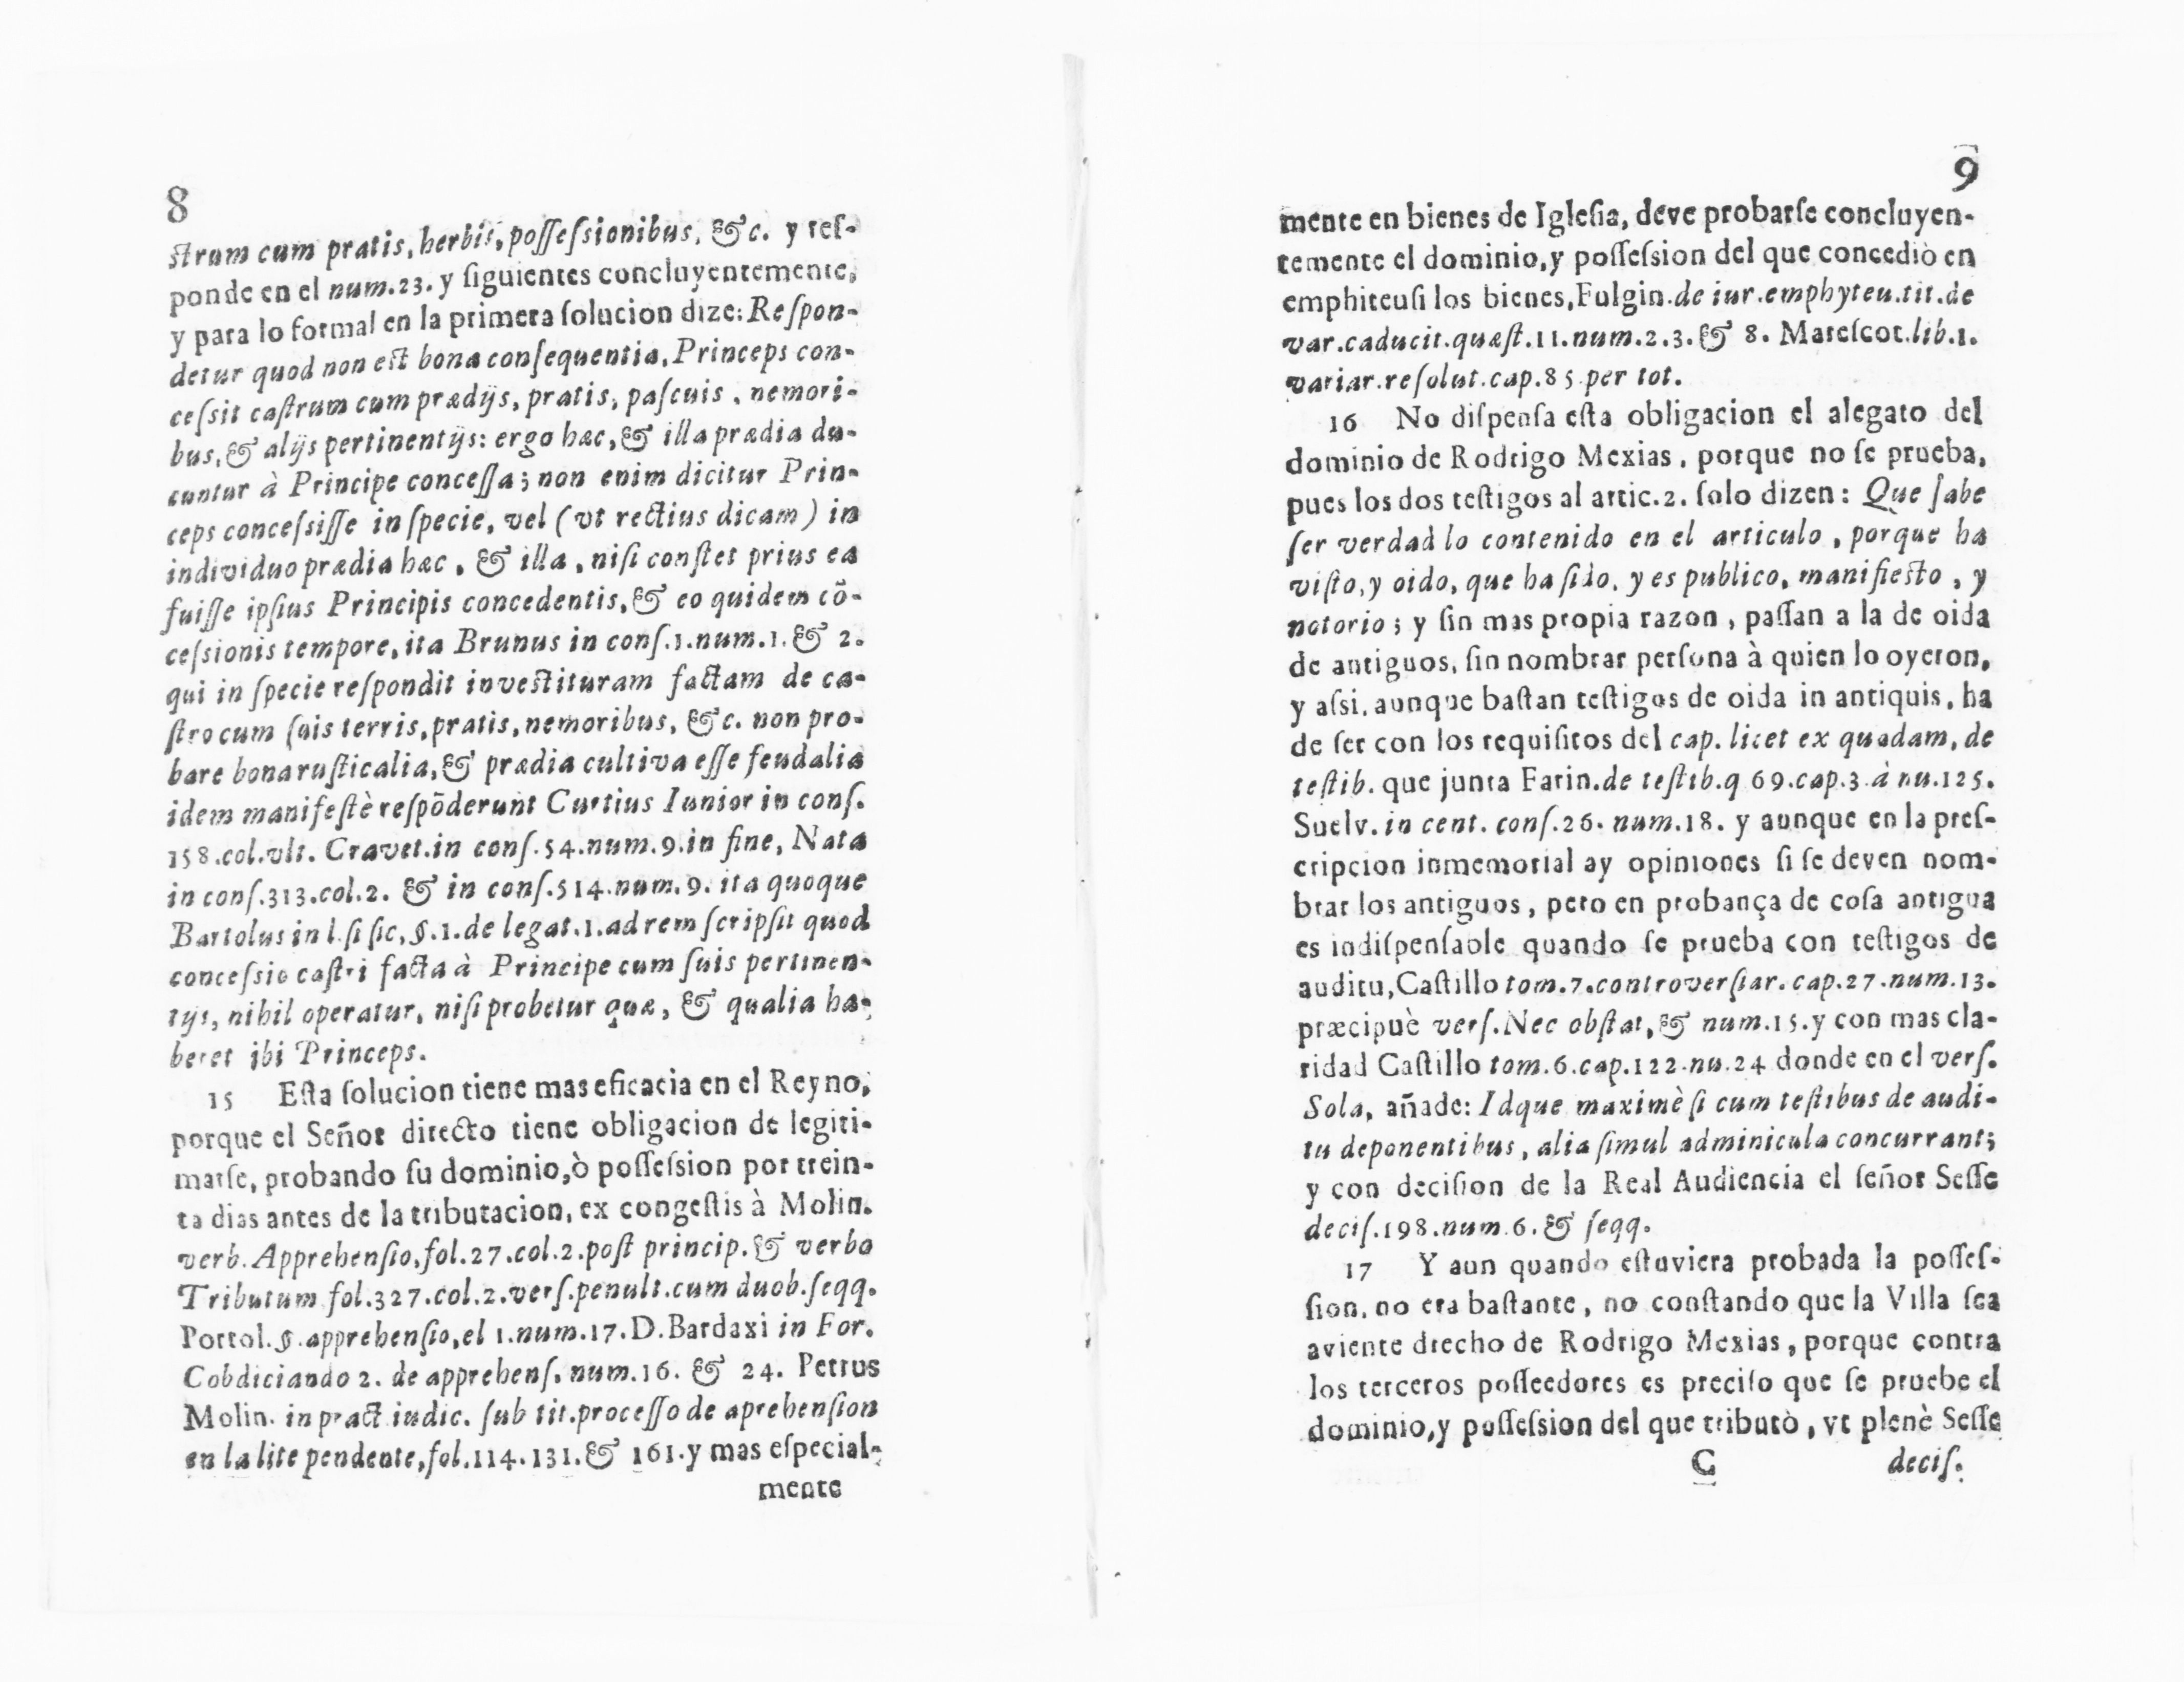 8
ſtrum cum pratis, herbis, poſſeſsionibus, &c. y reſ-
ponde en el num.23. y ſiguientes concluyentemente,
y para lo formal en la primera ſolucion dize: Reſpon-
detur quod non eſt bona conſequentia, Princeps con-
ceſsit caſtrum cum prædijs, pratis, paſcuis, nemori-
bus, & alijs pertinentijs: ergo hæc, & illa prædia du-
cuntur à Principe conceſſa; non enim dicitur Prin-
ceps conceſsiſſe in ſpecie, vel (vt rectius dicam) in
individuo prædia hæc, & illa, niſi conſtet prius ea
fuiſſe ipſius Principis concedentis, & eo quidem cõ-
ceſsionis tempore, ita Brunus in conſ.1.num.1. & 2.
qui in ſpecie reſpondit inveſtituram factam de ca-
ſtro cum ſuis terris, pratis, nemoribus, &c. non pro-
bare bona ruſticalia, & prædia cultiva eſſe feudalia
idem manifeſtè reſpõderunt Curtius Iunior in conſ.
158.col.vlt. Cravet.in conſ.54.num.9.in fine, Nata
in conſ.313.col.2. & in conſ.514.num.9. ita quoque
Bartolus in l.ſi ſic, §.1.de legat.1.ad rem ſcripſit quod
conceſsio caſtri facta à Principe cum ſuis pertinen-
tijs, nihil operatur, niſi probetur quæ, & qualia ha-
beret ibi Princeps.
15 Eſta ſolucion tiene mas eficacia en el Reyno,
porque el Señor directo tiene obligacion de legiti-
marſe, probando ſu dominio, ò poſſeſsion por trein-
ta dias antes de la tributacion, ex congeſtis à Molin.
verb. Apprehenſio, fol.27.col.2.poſt princip. & verbo
Tributum fol.327.col.2.verſ.penult.cum duob.ſeqq.
Portol.§.apprehenſio, el 1.num.17.D.Bardaxi in For.
Cobdiciando 2. de apprehenſ.num.16. & 24. Petrus
Molin. in pract iudic. ſub tit.proceſſo de aprehenſion
en la lite pendente, fol.114.131. & 161.y mas eſpecial-
mente
9
mente en bienes de Igleſia, deve probarſe concluyen-
temente el dominio, y poſſeſsion del que concediò en
emphiteuſi los bienes, Fulgin.de iur.emphyteu.tit.de
var.caducit.quæſt.11.num.2.3. & 8. Mareſcot.lib.1.
variar.reſolut.cap.85.per tot.
16 No diſpenſa eſta obligacion el alegato del
dominio de Rodrigo Mexias, porque no ſe prueba,
pues los dos teſtigos al artic.2. ſolo dizen: Que ſabe
ſer verdad lo contenido en el articulo, porque ha
viſto, y oido, que ha ſido, y es publico, manifieſto, y
notorio; y ſin mas propia razon, paſſan a la de oida
de antiguos, ſin nombrar perſona à quien lo oyeron,
y aſsi, aunque baſtan teſtigos de oida in antiquis, ha
de ſer con los requiſitos del cap. licet ex quadam, de
teſtib. que junta Farin.de teſtib.q 69.cap.3.à nu.125.
Suelv. in cent. conſ.26. num.18. y aunque en la preſ-
cripcion inmemorial ay opiniones ſi ſe deven nom-
brar los antiguos, pero en probança de coſa antigua
es indiſpenſable quando ſe prueba con teſtigos de
auditu, Caſtillo tom.7.controverſiar.cap.27.num.13.
præcipuè verſ.Nec obſtat, & num.15.y con mas cla-
ridad Caſtillo tom.6.cap.122.nu.24 donde en el verſ.
Sola, añade: Idque maximè ſi cum teſtibus de audi-
tu deponentibus, alia ſimul adminicula concurrant;
y con deciſion de la Real Audiencia el ſeñor Seſſe
deciſ.198.num.6. & ſeqq.
17 Y aun quando eſtuviera probada la poſſeſ-
ſion, no era baſtante, no conſtando que la Villa ſea
aviente drecho de Rodrigo Mexias, porque contra
los terceros poſſeedores es preciſo que ſe pruebe el
dominio, y poſſeſsion del que tributò, vt plenè Seſſe
C deciſ.